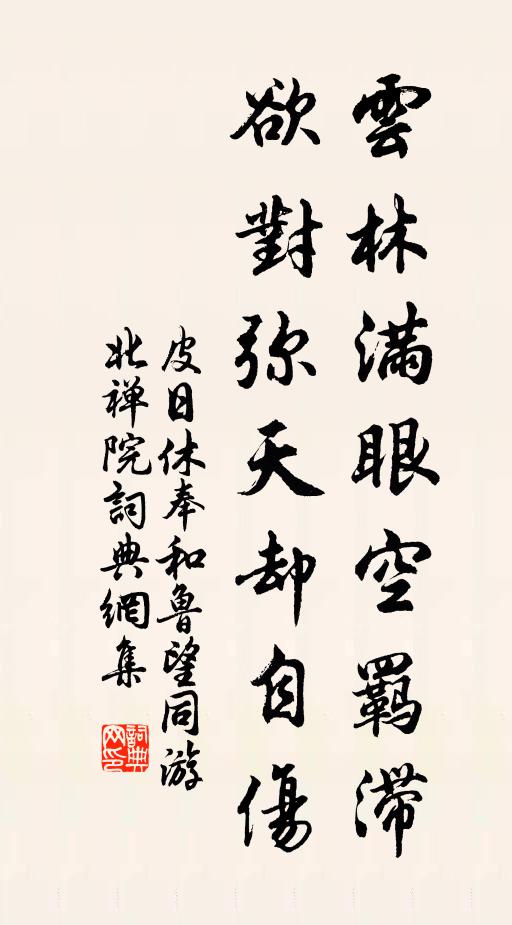 雲林滿眼空羈滯
欲對弥天却自傷
皮日休奉和魯望同游
北禅院詞典網集
詞典网印